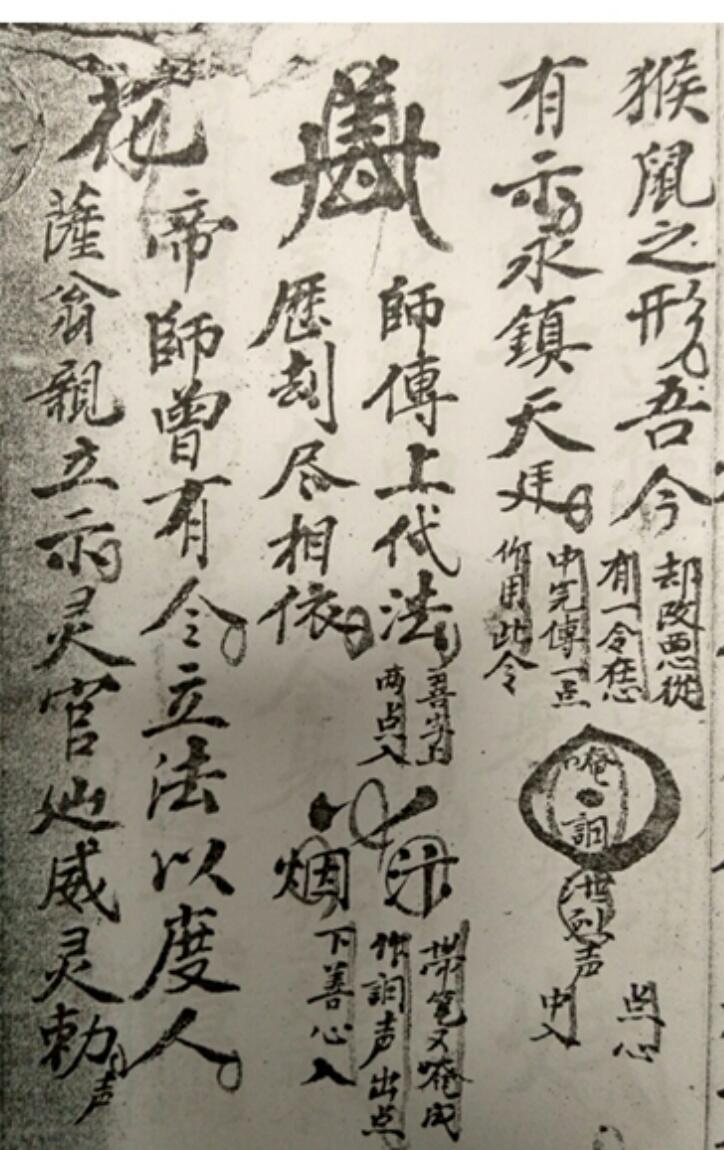 猴鼠之形吾今
有示永鎮天廷
却改恶從
有一令在心
中完傳一点
作用此令
唵
訚
声
点心
中入
師傳上代法
歷刦尽相依
喜
两点入
烟
帶笔又唵成
作訚声出点
下善心入
花
帝師曾有令立法以度人
薩翁親立示灵官灿威灵勅声